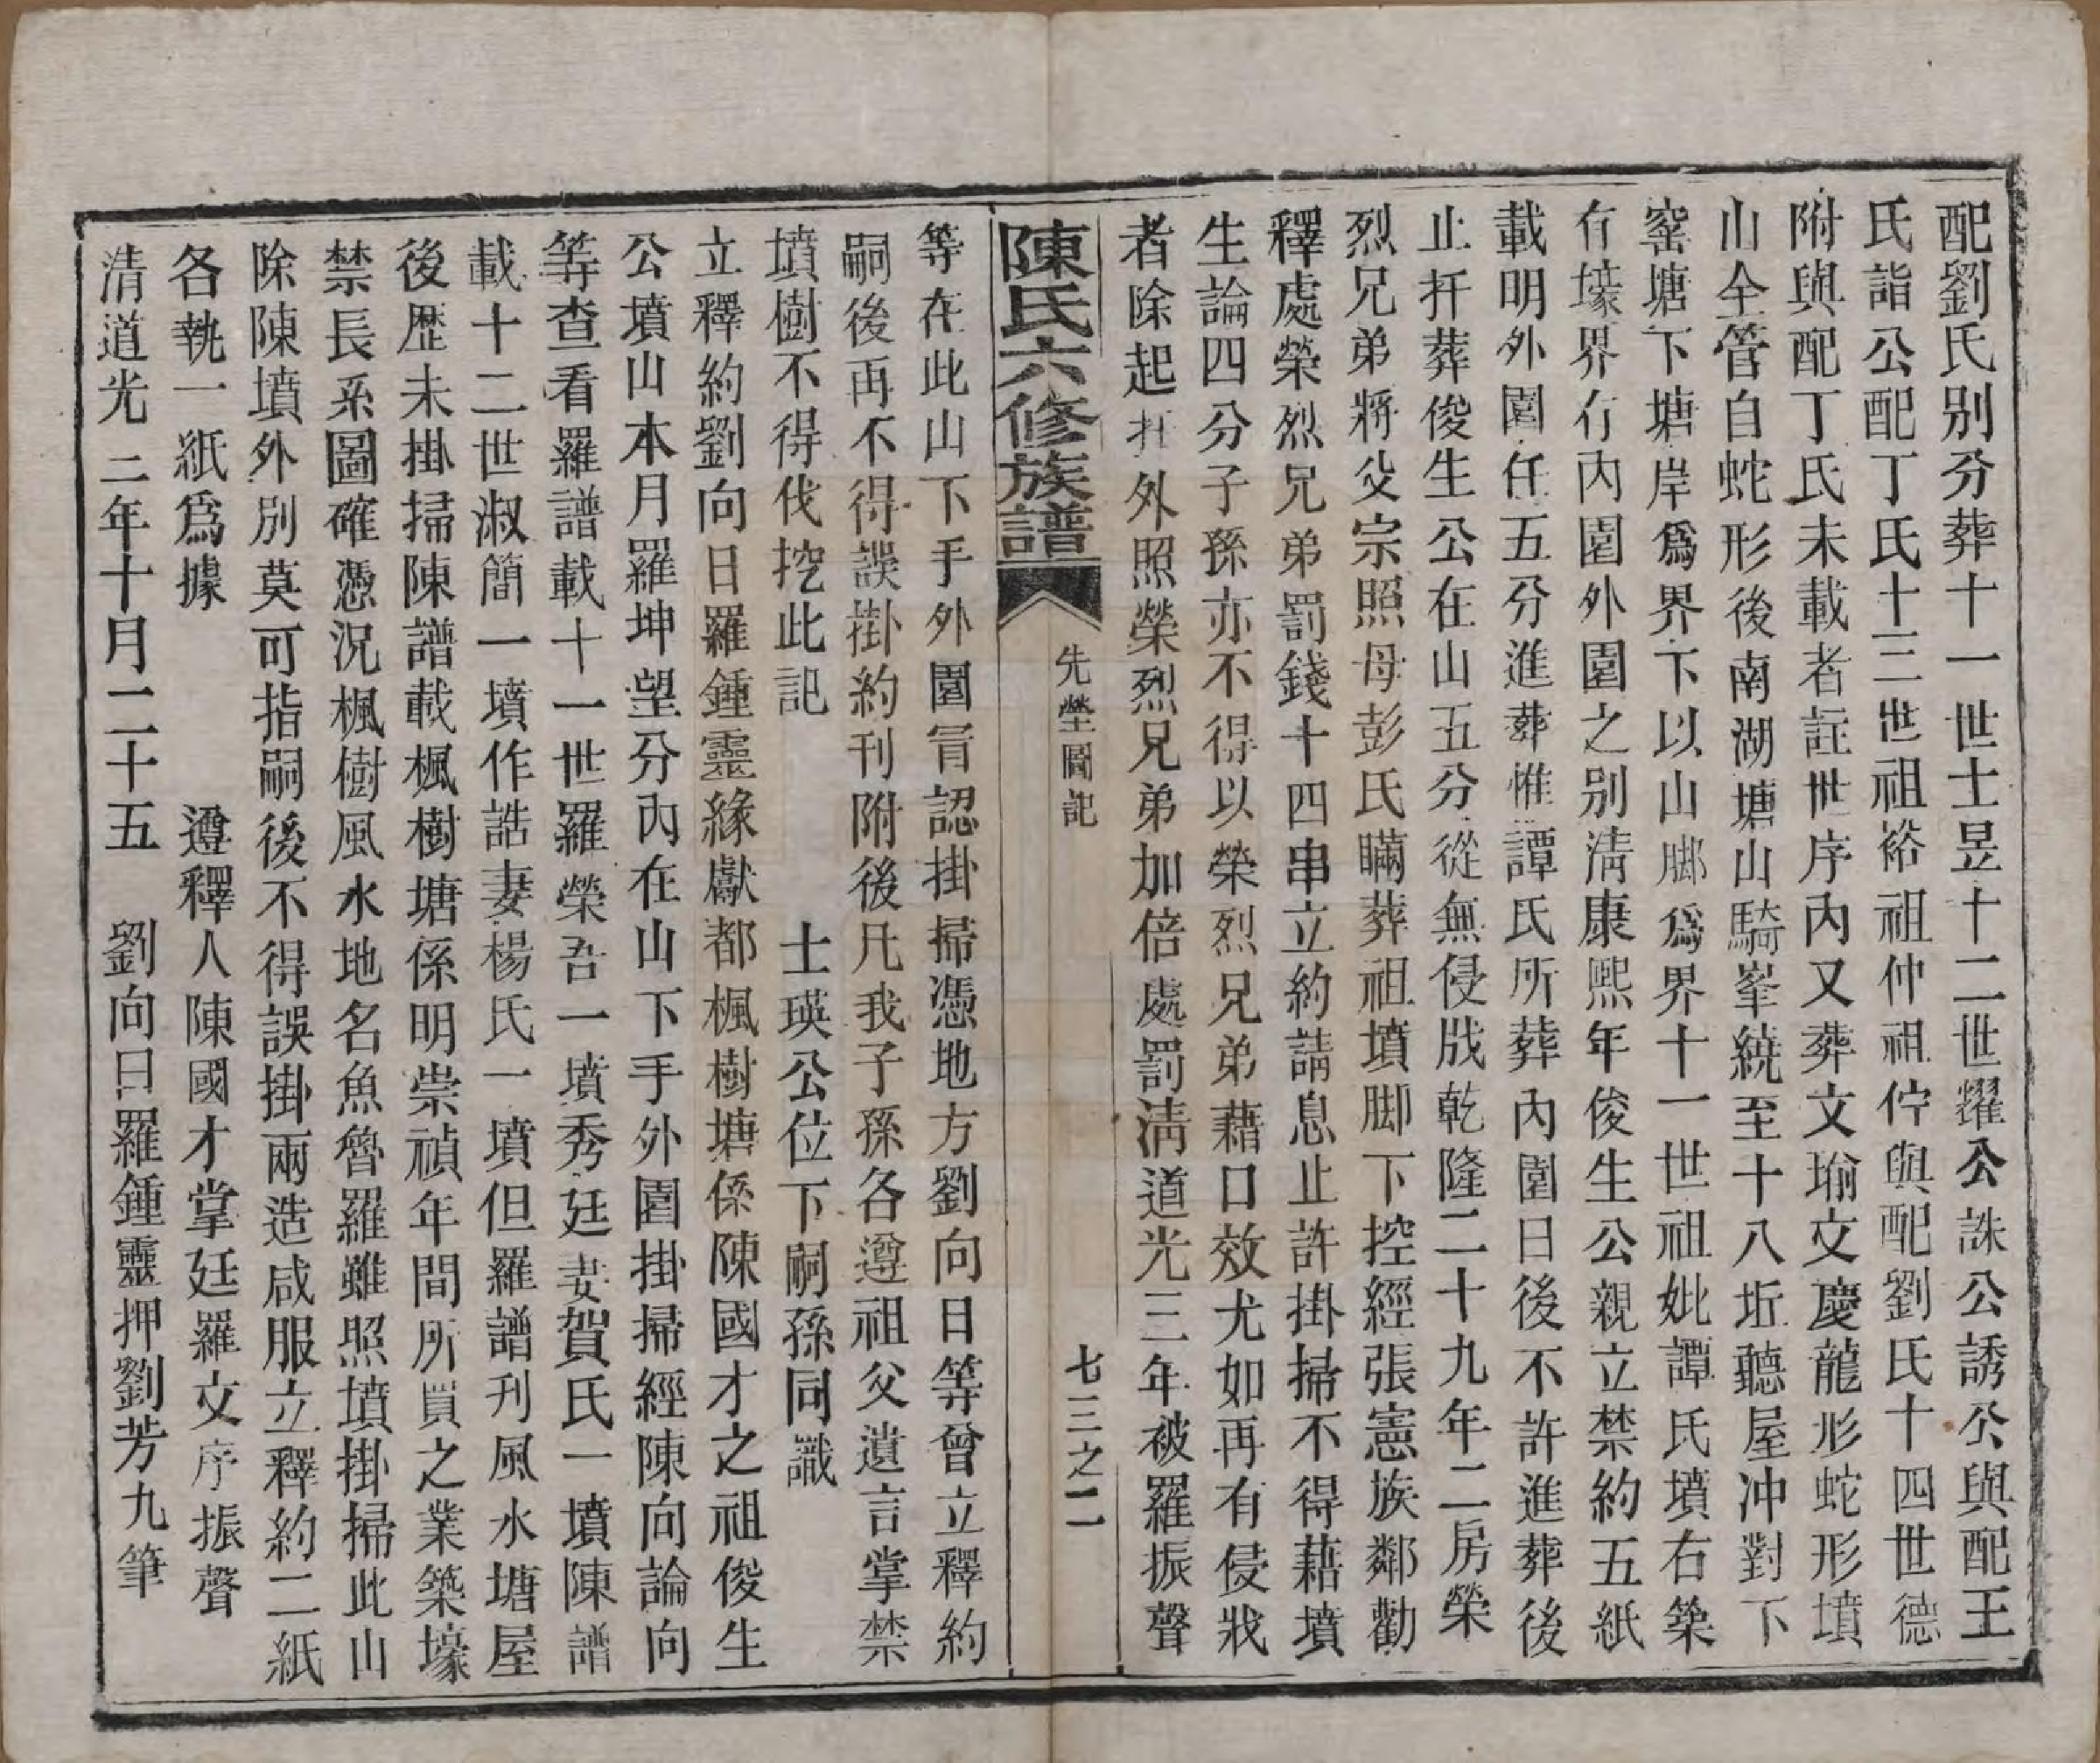 配劉氏別分葬十一世士昱十二世耀公誅公誘公與配王
氏詣公配丁氏十三世祖裕祖仲祖佇與配劉氏十四世德
附與配丁氏未載者註世序內又葬文瑜文慶龍形蛇形墳
山全管自蛇形後南湖塘山騎峯繞至十八坵聽屋冲對下
窰塘下塘岸爲界下以山腳爲界十一世祖妣譚氏墳右築
有壕界有內圍外圍之別清康熙年俊生公親立禁約五紙
載明外圍任五分進葬惟譚氏所葬內圍日後不許進葬後
止扦葬俊生公在山五分從無侵戕乾隆二十九年二房榮
烈兄弟將父宗照母彭氏瞞葬祖墳脚下控經張憲族鄰勸
釋處榮烈兄弟罰錢十四串立約請息止許掛掃不得藉墳
生論四分子孫亦不得以榮烈兄弟藉口效尤如再有侵戕
者除起扦外照榮烈兄弟加倍處罰清道光三年被羅振聲
陳氏六修族譜 先塋圖記 七三之二
等在此山下手外圍冐認掛掃憑地方劉向日等曾立釋約
嗣後再不得誤掛約刊附後凡我子孫各遵祖父遺言掌禁
墳樹不得伐挖此記 士瑛公位下嗣孫同識
立釋約劉向日羅鍾靈緣獻都楓樹塘係陳國才之祖俊生
公墳山本月羅坤望分內在山下手外圍掛掃經陳向論向
等查看羅譜載十一世羅榮吾一墳秀廷妻賀氏一墳陳譜
載十二世淑簡一墳作誥妻楊氏一墳但羅譜刊風水塘屋
後歷未掛掃陳譜載楓樹塘係明崇禎年間所買之業築壕
禁長系圖確憑況楓樹風水地名魚魯羅雖照墳掛掃此山
除陳墳外別莫可指嗣後不得誤掛兩造咸服立釋約二紙
各執一紙爲據 遵釋人陳國才掌廷羅文序振聲
清道光二年十月二十五 劉向日羅鍾靈押劉芳九筆